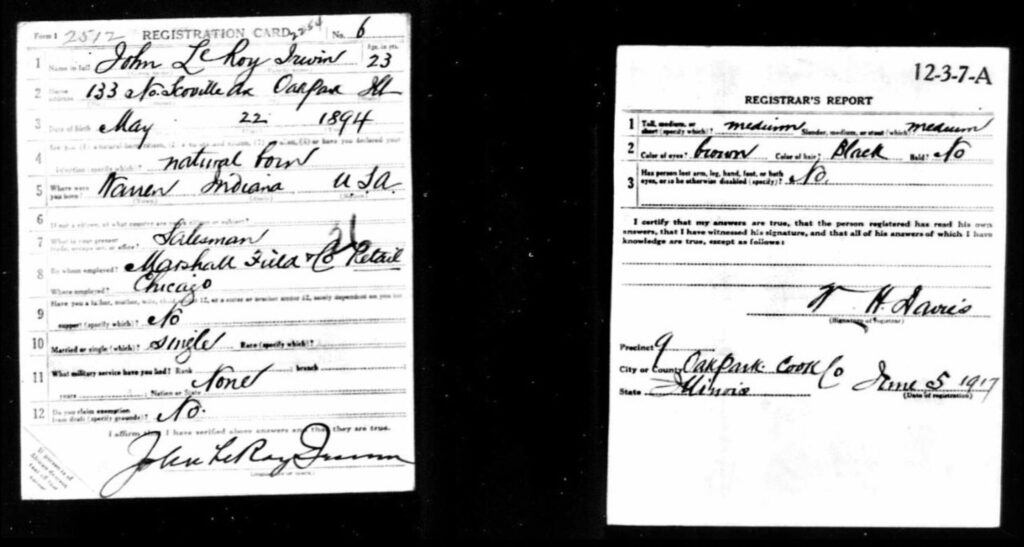 Form 1 2512 REGISTRATION CARD 2254 No. 6
1 Name in full John LeRoy Irwin Age, in yrs. 23
2 Home address 133 No. Scoville Ave Oak Park Ill
3 Date of birth May 22 1894
4 Are you (1) a natural born citizen, (2) a naturalized citizen, (3) an alien, (4) or have you declared your
intention (specify which)? natural born
5 Where were you born? Warren Indiana USA
6 If not a citizen, of what country are you a citizen or subject?
7 What is your present trade, occupation, or office? Salesman 21
8 By whom employed? Marshall Field & Co Retail
Where employed? Chicago
9 Have you a father, mother, wife, child under 12, or a sister or brother under 12, solely dependent on you for
support (specify which)? No
10 Married or single (which)? Single Race (specify which)?
11 What military service have you had? Rank branch
years Nation or State None
12 Do you claim exemption from draft (specify grounds)? No.
I affirm that I have verified above answers and that they are true.
John LeRoy Irwin
If person is of African descent, tear off this corner
12-3-7-A
REGISTRAR'S REPORT
1 Tall, medium, or short (specify which)? medium Slender, medium, or stout (which)? medium
2 Color of eyes? brown Color of hair? Black Bald? No
3 Has person lost arm, leg, hand, foot, or both
eyes, or is he otherwise disabled (specify)? No.
I certify that my answers are true, that the person registered has read his own
answers, that I have witnessed his signature, and that all of his answers of which I have
knowledge are true, except as follows:
W. H. Davis
(Signature of registrar)
Precinct 9
City or County Oak Park. Cook Co
State Illinois
June 5 1917
(Date of registration)